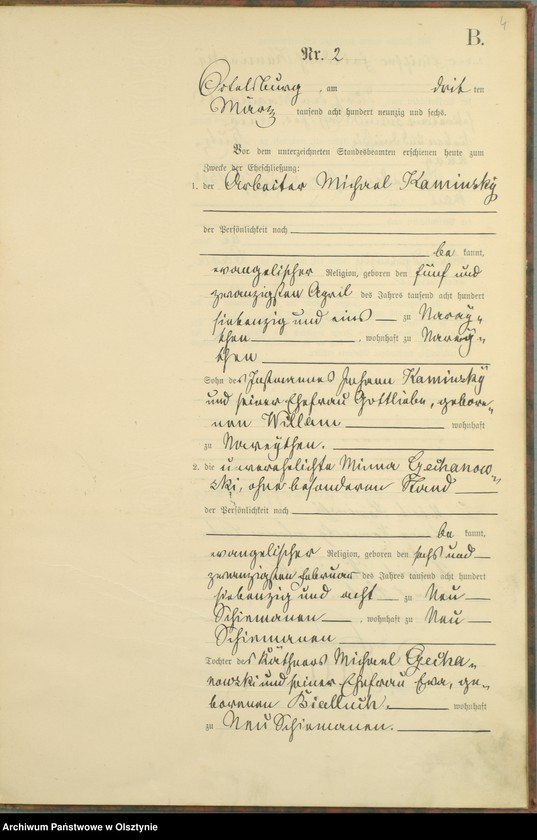 4
B.
Nr. 2
Ortelsburg, am dritten
März tausend acht hundert neunzig und sechs.
Vor dem unterzeichneten Standesbeamten erschienen heute zum
Zwecke der Eheschließung:
1. der Arbeiter Michael Kaminsky
der Persönlichkeit nach
be kannt,
evangelischer Religion, geboren den fünf und
zwanzigsten April des Jahres tausend acht hundert
siebenzig und eins zu Naray-
then, wohnhaft zu Narey-
then
Sohn des Instmannes Johann Kaminsky
und seiner Ehefrau Gottliebe, gebore-
nen Willam wohnhaft
zu Nareythen.
2. die unverehelichte Minna Gechanow-
ski, ohne besonderen Stand
der Persönlichkeit nach
be kannt,
evangelischer Religion, geboren den sechs und
zwanzigsten Februar des Jahres tausend acht hundert
siebenzig und acht zu Neu
Schiemanen, wohnhaft zu Neu
Schiemanen
Tochter des Käthners Michael Gecha-
nowski und seiner Ehefrau Eva, ge-
borenen Kialluck, wohnhaft
zu Neu Schiemanen.
Archiwum Państwowe w Olsztynie